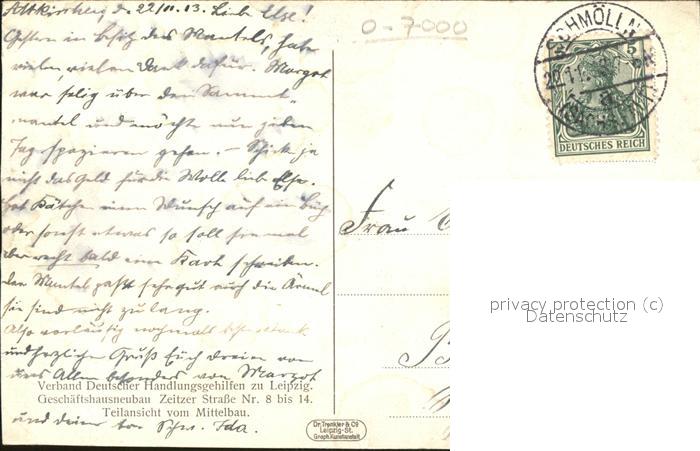 Altkirchberg d. 22/11.13. Liebe Else!
Gestern in Besitz des Mantels, habe
vielen, vielen Dank dafür. Margot
war selig über den Sammt-
mantel und möchte nun jeden
Tag spazieren gehen. – Schicke ja
nicht das Geld für die Wolle lieb Else.
Hat Kätchen einen Wunsch auf ein Buch
oder sonst etwas so soll sie mal
aber recht bald eine Karte schreiben.
Der Mantel paßt sehr gut auch die Ärmel
sie sind nicht zu lang.
Also vorläufig nochmals
und herzliche Grüße Euch dreien von
uns Allen besonders von Margot
und deiner Schw. Ida.
Verband Deutscher Handlungsgehilfen zu Leipzig.
Geschäftshausneubau Zeitzer Straße Nr. 8 bis 14.
Teilansicht vom Mittelbau.
Dr. Trenkler & Co
Leipzig-St.
Graph. Kunstanstalt
0-7000
SCHMÖLLN
5
DEUTSCHES REICH
Frau
privacy protection (c)
Datenschutz